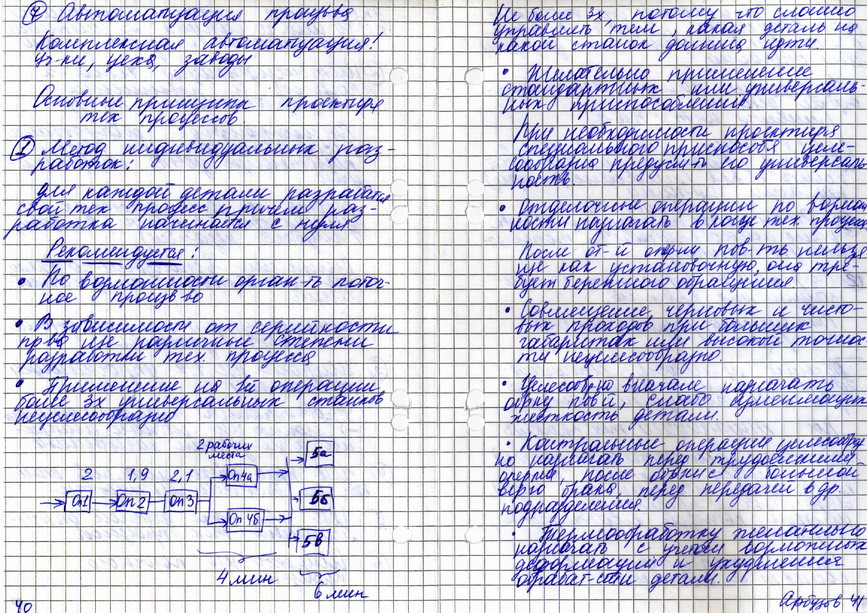 ⑦ Автоматизация произв-ва
Комплексная автоматизация!
уч-ки, цеха, заводы
Основные принципы проектир-я
тех процессов.
① Метод индивидуальных раз-
работок:
для каждой детали разрабат-ся
свой тех процесс причем раз-
работка начинается с нуля
Рекомендуется:
• По возможности орган-ть поточ-
ное произв-во
• В зависимости от серийности
пр-ва исп различные степени
разработки тех процесса
• Применение на 1й операции
более 3х универсальных станков
нецелесообразно
2 рабочих
места
2 1,9 2,1
Оп1 Оп2 Оп3 Оп4а Оп4б
5а
5б
5в
4 мин
6 мин
40
Не более 3х, потому что сложно
управлять тем, какая деталь на
какой станок должна идти.
• Желательно применение
стандартных или универсаль-
ных приспособлений
При необходимости проектир-я
специального приспособл-я целе-
сообразно предусм-ть его универсаль-
ность.
• Отделочные операции по возмож
ности назначать в конце тех процесса
После от-й опер-и пов-ть нельзя
исп как установочную, она тре-
бует бережного обращения
• Совмещение черновых и чисто-
вых проходов при больших
габаритах или высокой точнос-
ти нецелесообразно
• Целесообр-но вначале назначать
обр-ку пов-й, слабо уменьшающих
жесткость детали.
• Контрольные операции целесообраз
но назначать перед трудоемкими
опер-ми, после обр-ки с большой
вер-ю брака, перед передачей в др.
подразделения.
• Термообработку желательно
назначать с учетом возможных
деформаций и ухудшения
обрабат-сти детали.
Арбузов 41